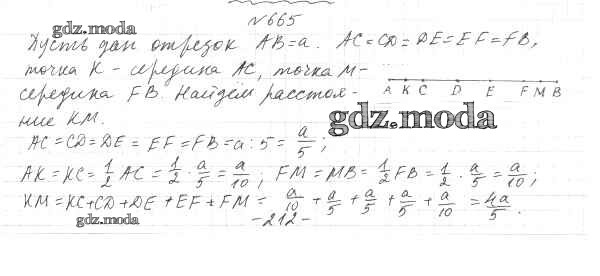 №665
gdz.moda
Пусть дан отрезок AB=a. AC=CD=DE=EF=FB,
точка K - середина AC, точка M-
середина FB. Найдём расстоя-
ние KM.
A K C D E F M B
gdz.moda
AC=CD=DE=EF=FB=a:5=a/5;
AK=KC=1/2 AC=1/2·a/5=a/10; FM=MB=1/2 FB=1/2·a/5=a/10;
KM=KC+CD+DE+EF+FM=a/10+a/5+a/5+a/5+a/10=4a/5.
gdz.moda
-212-